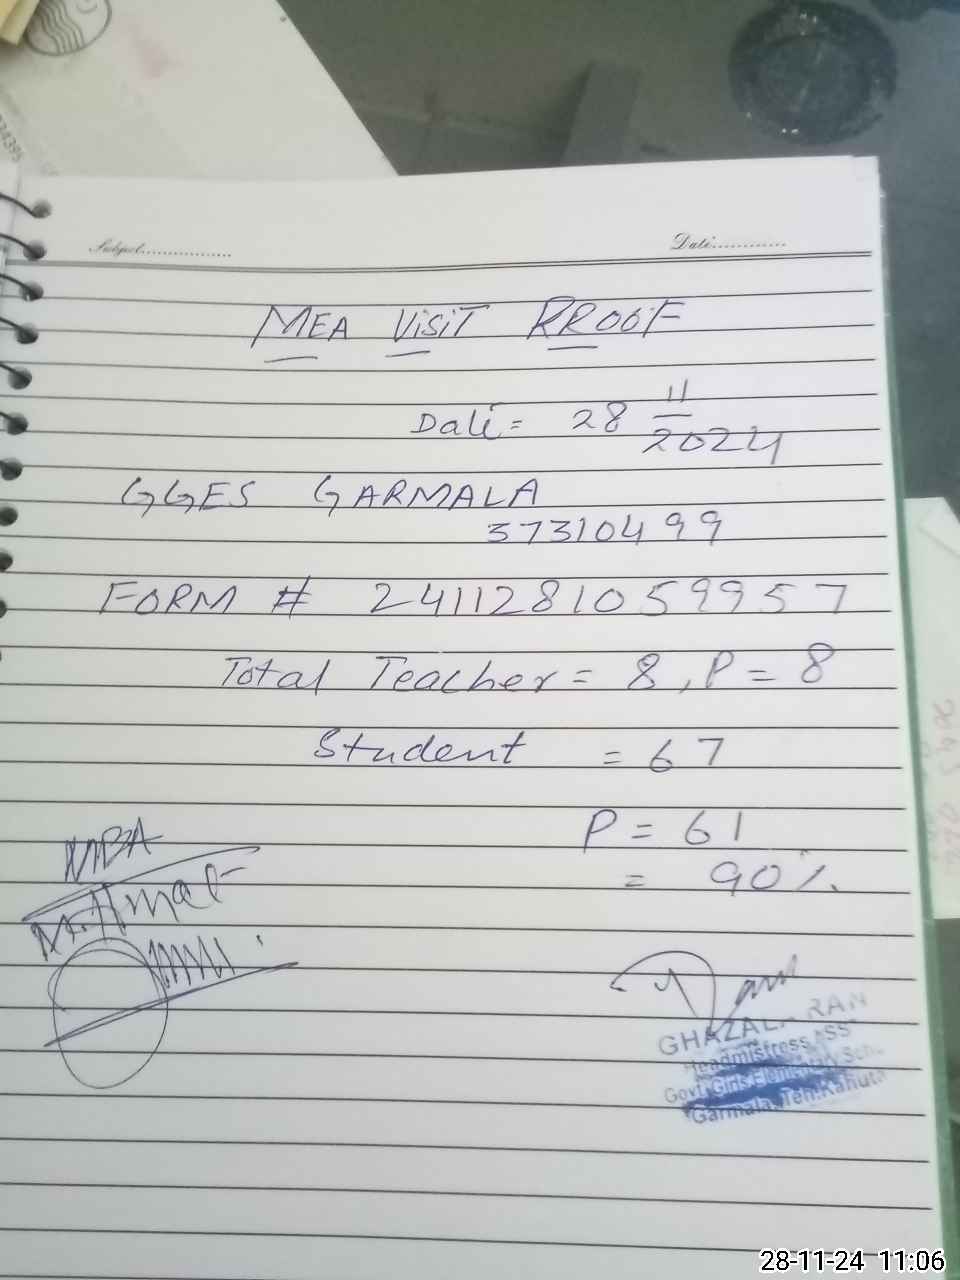 Subject................
Date............
MEA VISIT RROOF
Date = 28 11/2024
GGES GARMALA
37310499
FORM # 2411281059957
Total Teacher = 8, P = 8
Student = 67
P = 61
= 90%
GHAZALA RAN
Headmistress "SS"
Govt. Girls Elementary Sch
Garmala, Teh: Kahuta
28-11-24 11:06